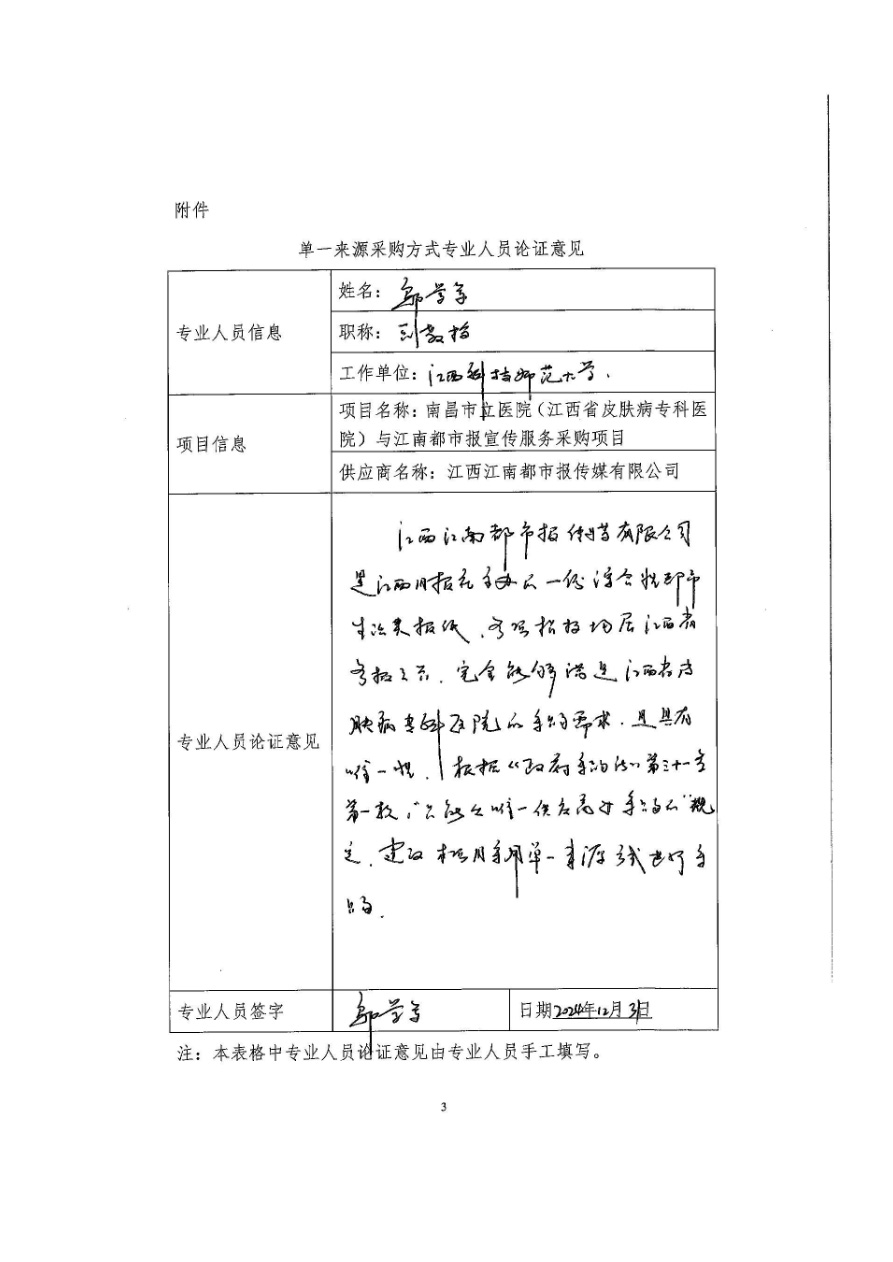 附件
单一来源采购方式专业人员论证意见
专业人员信息
姓名:
职称: 副教授
工作单位: 江西科技师范大学.
项目信息
项目名称: 南昌市立医院(江西省皮肤病专科医
院) 与江南都市报宣传服务采购项目
供应商名称: 江西江南都市报传媒有限公司
专业人员论证意见
江西江南都市报传媒有限公司
是江西日报社主办的一份综合性都市
生活类报纸,
完全能够满足江西省皮
肤病专科医院的采购需求, 且具有
唯一性, 根据《政府采购法》第三十一条
第一款,"只能从唯一供应商处采购的"规
定, 建议本项目采用单一来源方式进行采
购.
专业人员签字
日期2024年12月3日
注: 本表格中专业人员论证意见由专业人员手工填写。
3